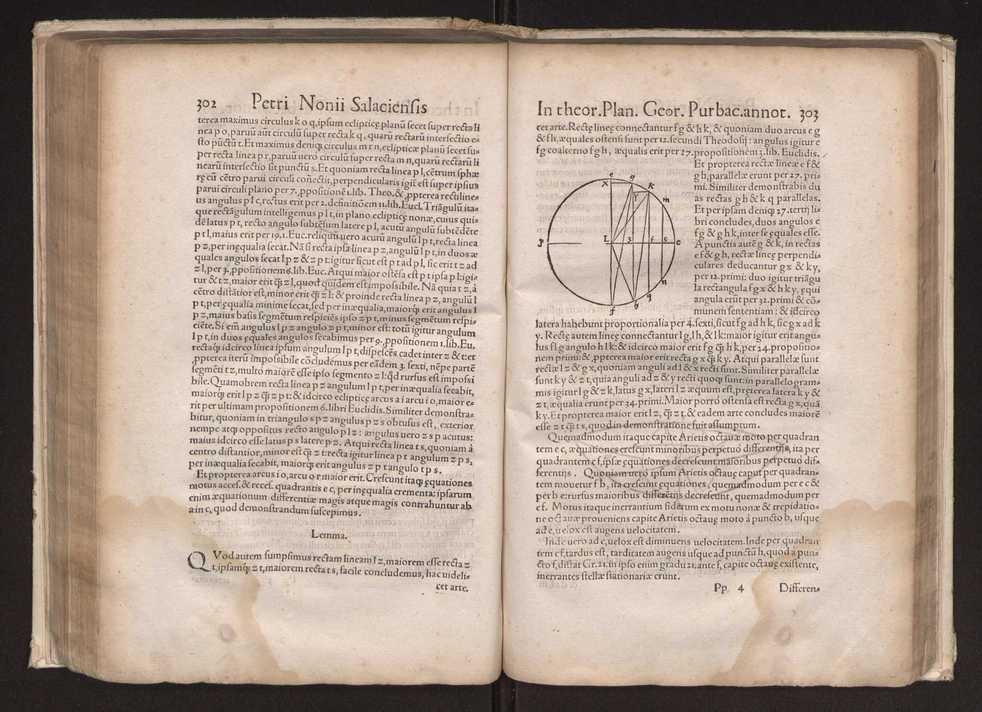 302 Petri Nonii Salaciensis
terea maximus circulus k o q, ipsum eclipticę planũ secet super recta li
nea p o, paruũ aũt circulũ super recta k q, quarũ rectarũ intersectio e⸗
sto pũctũ t. Et maximus deniq; circulus m r n, eclipticæ planũ secet su⸗
per recta linea p r, paruũ vero circulũ super recta m n, quarũ rectarũ li
nearũ intersectio sit punctũ s. Et quoniam recta linea p l, cẽtrum sphæ
ręcũ cẽtro parui circuli cõnectit, perpendicularis igit est super ipsius
parui circuli plano per 7. ꝓpositionẽ 1. lib. Theo. & ꝓpterea rectiline⸗
us angulus p l c, rectus erit per 2. definitiõem 11. lib. Eucl. Triãgulũ ita⸗
que rectãgulum intelligemus p l t, in plano eclipticę nonæ, cuius qui⸗
dẽ latus p t, recto angulo subtẽsum latere p l, acutũ angulũ subtẽdẽte
p t l, maius erit per 19. 1. Euc. reliquũ vero acutũ angulũ l p t, recta linea
p z, per inęqualia secat. Nã si recta ipsa linea p z, angulũ l p t, in duos æ
quales angulos secat l p z & z p t: igitur sicut est p t ad p l, sic erit t z ad
z l, per 3. ꝓpositionem 6. lib. Euc. Atqui maior ostẽsa est p t ipsa p l: igi⸗
tur & t z, maior erit q̃ z l, quod quidem est impossibile. Nã quia t z, à
cẽtro distãtior est, minor erit q̃ z l: & proinde recta linea p z, angulũ l
p t, per ęqualia minime secat, sed per inæqualia, maiorq; erit angulus l
p z, maius basis segmẽtum respiciẽs ipso z p t, minus segmẽtum respi⸗
ciẽte. Si em̃ angulus l p z angulo z p t, minor est: totũ igitur angulum
l p t, in duos ęquales angulos secabimus per 9. ꝓpositionem 1. lib. Eu.
rectaq; idcirco linea ipsum angulum l p t, dispescẽs cadet inter z & t: et
ꝓpterea iterũ impossibile cõcludemus per eãdem 3. sexti, nẽpe partẽ
segmẽti t z, multo maiorẽ esse ipso segmento z l: qd rursus est impossi
bile. Quamobrem recta linea p z angulum l p t, per inæqualia secabit,
maiorq; erit l p z q̃ z p t: & idcirco eclipticę arcus a i arcu i o, maior e⸗
rit per ultimam propositionem 6. libri Euclidis. Similiter demonstra⸗
bitur, quoniam in triangulo s p z angulus p z s obtusus est, exterior
nempe atq; oppositus recto angulo p l z: angulus uero z s p acutus:
maius idcirco esse latus p s latere p z. Atqui recta linea t s, quoniam à
centro distantior, minor est q̃ z t: recta igitur linea p t angulum z p s,
per inæqualia secabit, maiorq; erit angulus z p t angulo t p s.
Et propterea arcus i o, arcu o r maior erit. Crescunt itaq; ęquationes
motus acceſ. & receſ. quadrantis e c, per inęqualia crementa: ipsarum
enim æquationum differentiæ magis atque magis contrahuntur ab
a in c, quod demonstrandum suscepimus.
Lemma.
QVod autem sumpsimus rectam lineam l z, maiorem esse recta z
t, ipsamq; z t, maiorem recta t s, facile concludemus, hac uideli⸗
cet arte.
In theor. Plan. Geor. Purbac. annot. 303
cet arte. Rectę lineę connectantur f g & h k, & quoniam duo arcus e g
& f h, æquales ostensi sunt per 12. secundi Theodosij: angulus igitur e
f g coalterno f g h, æqualis erit per 27. propositionem 3. lib. Euclidis.
Et propterea rectæ lineæ e f &
g h, parallelæ erunt per 27. pri⸗
mi. Similiter demonstrabis du
as rectas g h & k q parallelas.
Et per ipsam deniq; 27. tertij li⸗
bri concludes, duos angulos e
f g & g h k, inter se ęquales esse.
A punctis autẽ g & k, in rectas
e f & g h, rectæ lineę perpendi⸗
culares deducantur g x & k y,
per 12. primi: duo igitur triãgu
la rectangula f g x & h k y, ęqui
angula erũt per 32. primi & cõ⸗
munem sententiam: & idcirco
e g k m x T P L z t s c n q h f
latera habebunt proportionalia per 4. sexti, sicut f g ad h k, sic g x ad k
y. Rectę autem lineę connectantur l g, l h, & l k: maior igitur erit angu⸗
lus f l g angulo h l k: & idcirco maior erit f g q̃ h k, per 24. propositio⸗
nem primi: & ꝓpterea maior erit recta g x q̃ k y. Atqui parallelæ sunt
rectæ l z & g x, quoniam anguli ad l & x recti sunt. Similiter parallelæ
sunt k y & z t, quia anguli ad z & y recti quoq; sunt: in parallelogram⸗
mis igitur l g & z k, latus g x, lateri l z æquum est, pręterea latera k y &
z t, æqualia erunt per 34. primi. Maior porrò ostensa est recta g x, quã
k y. Et propterea maior erit l z, q̃ z t. & eadem arte concludes maiorẽ
esse z t q̃ t s, quod in demonstratione fuit assumptum.
Quemadmodum itaque capite Arietis octauæ moto per quadran
tem e c, æquationes crescunt minoribus perpetuò differentijs, ita per
quadrantem c f, ipsæ ęquationes decrescunt maioribus perpetuò dif⸗
ferentijs. Quoniam vero ipsum Arietis octauę caput per quadran⸗
tem mouetur f b, ita crescunt equationes, quemadmodum per e c &
per b e: rursus maioribus differẽtijs decrescunt, quemadmodum per
c f. Motus itaque inerrantium sideruṁ ex motu nonæ & trepidatio⸗
ne octauæ proueniens capite Arietis octauę moto à puncto b, usque
ad e, uelox est augens uelocitatem.
Inde uero ad c, uelox est diminuens uelocitatem. Inde per quadran
tem c f, tardus est, tarditatem augens usque ad punctũ h, quod à pun⸗
cto f, distat Gr. 21. in ipso enim gradu 21. ante f, capite octauę existente,
inerrantes stellæ stationariæ erunt.
Pp. 4 Differen⸗